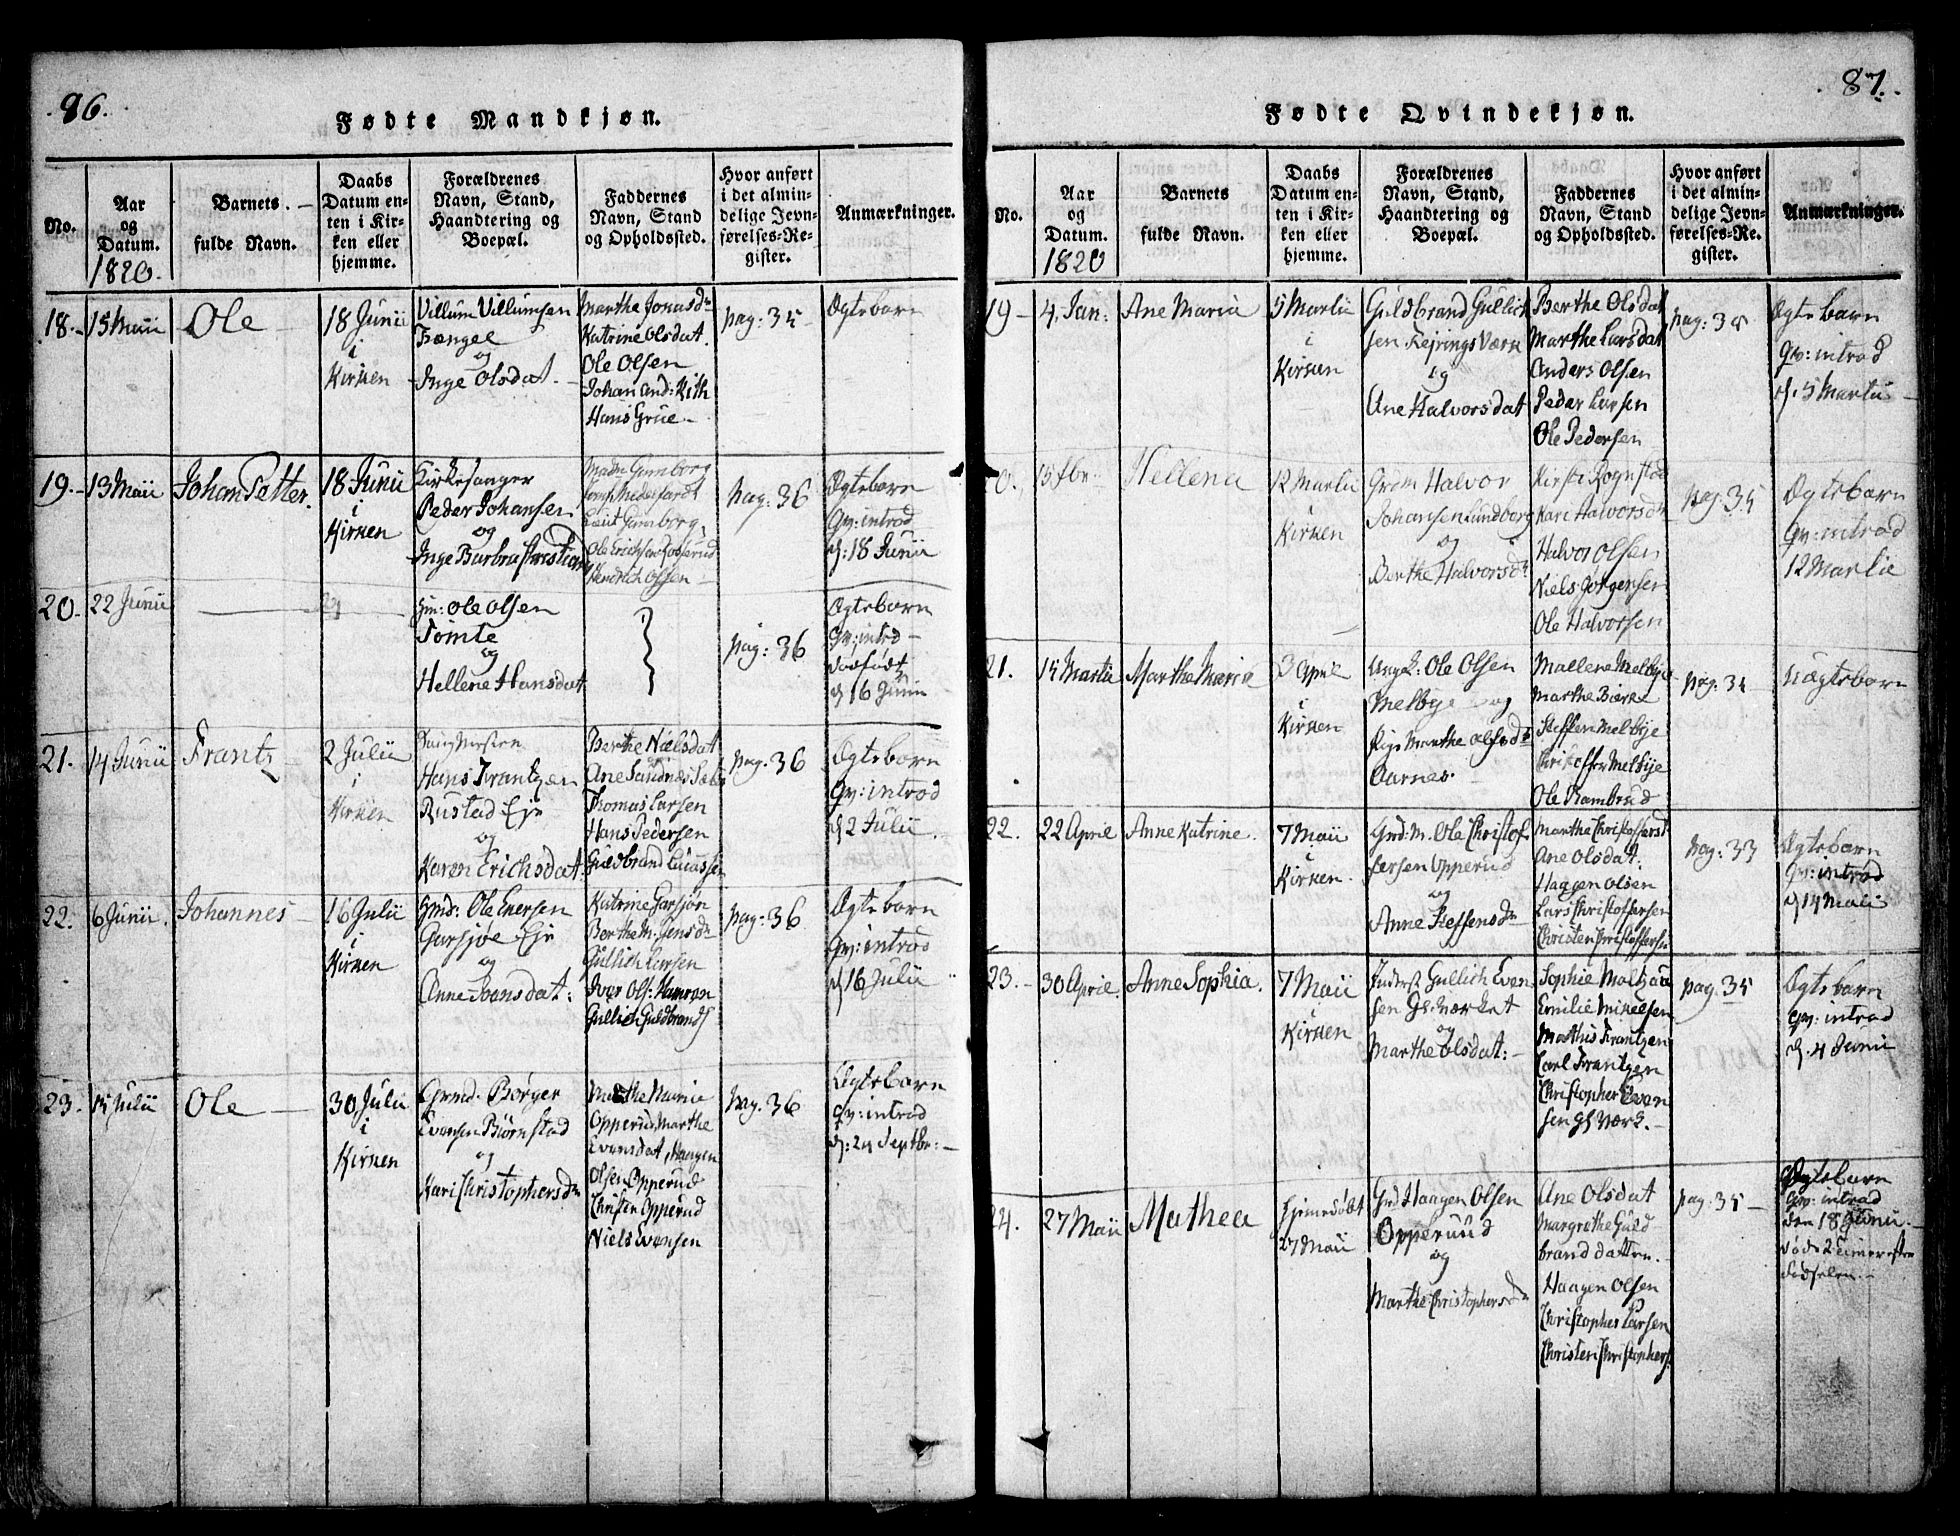 86.
Fødte Mandkjøn.
No.
Aar
og
Datum.
1820.
Barnets
fulde Navn.
Daabs
Datum en-
ten i Kir-
ken eller
hjemme.
Forældrenes
Navn, Stand,
Haandtering og
Boepæl.
Faddernes
Navn, Stand
og Opholdssted.
Hvor anført
i det almin-
delige Jevn-
førelses-Re-
gister.
Anmærkninger.
18.
15 Maii
Ole
18 Junii
i
Kirken
Villum Villumsen
og
Inge Olsdat
Marthe Jonasdr
Katrine Olsdat.
Ole Olsen
Hans Grue
pag: 35
Ægtebarn
19.
13 Maii
Johan Petter.
18 Junii
i
Kirken
Kirkesanger
Peder Johansen
og
Inge Barbra
Hendrich Olsen
pag: 36
Ægtebarn
Qv: introd
d: 18 Junii
20.
22 Junii
Ole Olsen
Tømte
og
Hellene Hansdat
pag: 36
Ægtebarn
Qv: introd
dødfødt
d 16 Junii
21.
14 Junii
Frantz
2 Julii
i
Kirken
Hans Frantzen
Rustad Eje
og
Karen Erichsdat
Berthe Nielsdat
Ane
Thomas Larsen
Hans Pedersen
Guldbrand
pag. 36
Ægtebarn
Qv: introd
d 2 Julii
22.
6 Junii.
Johannes
16 Julii
i
Kirken
Gmd: Ole Eversen
Garsjøe Eje
og
Anne
Katrine Garsjøe
Berthe M. Jensdr
Gullich Larsen
Iver Ols:
Gullich Guldbrands
pag: 36
Ægtebarn
Qv: introd
d 16 Julii
23.
15 Julii
Ole
30 Julii
i
Kirken
Grmd. Børger
Evensen Bjørnstad
og
Kari Christophersdr
Marthe Marie
Opperud, Marthe
Evensdat, Haagen
Olsen Opperud
Christen Opperud
Niels Evensen
pag. 36
Ægtebarn
Qv: introd
d: 24 Septbr:
87.
Fødte Qvindekjøn.
No.
Aar
og
Datum.
1820
Barnets
fulde Navn.
Daabs
Datum en-
ten i Kir-
ken eller
hjemme.
Forældrenes
Navn, Stand,
Haandtering og
Boepæl.
Faddernes
Navn, Stand
og Opholdssted.
Hvor anført
i det almin-
delige Jevn-
førelses-Re-
gister.
Anmærkninger.
19
4 Jan:
Ane Maria
5 Martii
i
Kirken
Guldbrand Gullich
sen Fejrings Værk
og
Ane Halvorsdat
Berthe Olsdat
Marthe Larsdat
Anders Olsen
Peder Larsen
Ole Pedersen
pag: 38
Ægtebarn
Qv: introd
d. 5 Martii
20.
15 fbr
Hellena
12 Martii
Kirken
Halvor
Johansen Lundborg
og
Berthe Halvorsdr
Kari Halvorsdr
Halvor Olsen
Niels Jørgensen
Ole Halvorsen
pag: 35
Ægtebarn
Qv: introd
12 Martii
21.
15 Martii
Marthe Maria
3 April
i
Kirken
Ungk: Ole Olsen
Melbye og
Pige Marthe Olsdr
Aarnes
Mallene Melbye
Marthe
Steffen Melbye
Christoffer Melbye
Ole Rambrud
pag: 34
Uægtebarn
22.
22 Aprie
Anne Katrine.
7 Maii
Kirken.
Grd: M. Ole Christof
fersen Opperud
og
Anne Steffensdr
Marthe Christoffersd
Ane Olsdat:
Haagen Olsen
Lars Christoffersen
Christen Christoffersen
pag: 33
Ægtebarn
Qv: introd
d 14 Maii
23.
30 Aprie.
Anne Sophia.
7 Maii
Kirken
Inderst Gullich Even
sen Gl: Værket
og
Marthe Olsdat:
Sophie Maltzau
Emilie Mikelsen
Mathis Frantzen
Carl Frantzen
Christopher Even
sen Gl Værk.
pag. 35
Ægtebarn
Qv: introd
d. 4 Junii
24.
27 Maii
Mathea
hjemedøbt
27 Maii
Grd Haagen Olsen
Opperuud
og
Marthe Christophersdr
Ane Olsdat
Margrethe Guld
brand datten.
Haagen Olsen
Christopher Larsen
Christen Christophers
pag: 35
Ægtebarn
Qv: introd
den 18 Junii
døde 2 timer efter
fødselen.